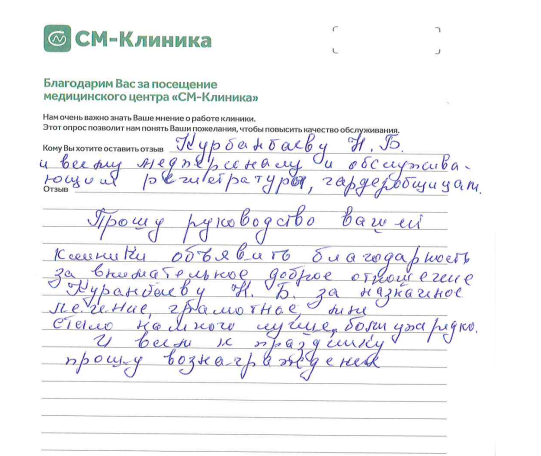 СМ-Клиника
Благодарим Вас за посещение
медицинского центра «СМ-Клиника»
Нам очень важно знать Ваше мнение о работе клиники.
Этот опрос позволит нам понять Ваши пожелания, чтобы повысить качество обслуживания.
Кому Вы хотите оставить отзыв Курбанбаеву Н. Б.
и всему медперсоналу и обслужива-
ющим регистратуры, гардеробщицам.
Отзыв
Прошу руководство вашей
клиники объявить благодарность
за внимательное доброе отношение
Куранбаеву Н. Б. за назначное
лечение, грамотное, мне
стало намного лучше, боли уж редко.
И всем к празднику
прошу вознаграждения